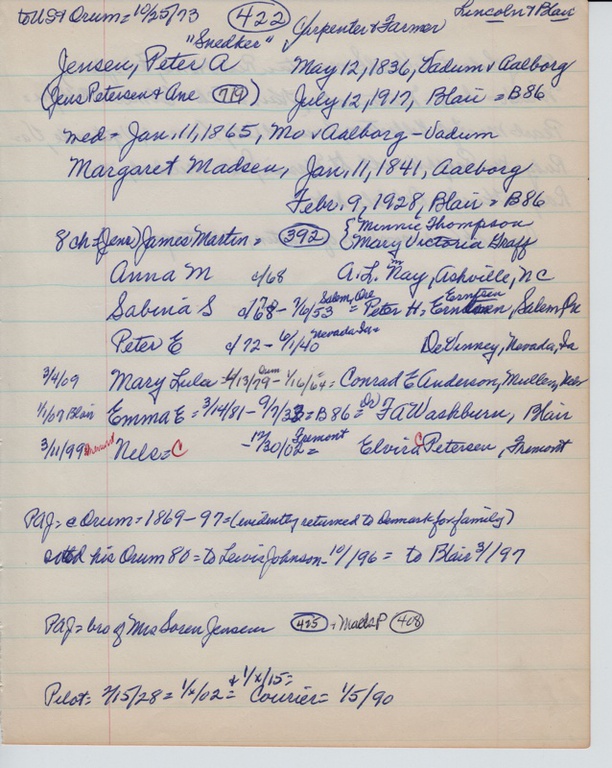 to US & Orum = 10/25/73 422 Lincoln & Blair
"Snedker" Carpenter & Farmer
Jensen, Peter A May 12, 1836, Vadum v Aalborg
(Jens Petersen & Ane 719) July 12, 1917, Blair = B86
med = Jan. 11, 1865, Mo v Aalborg - Vadum
Margaret Madsen, Jan. 11, 1841, Aalborg
Febr. 9, 1928, Blair = B86
8 ch = (Jens) James Martin = 392 { Minnie Thompson
Mary Victoria Graff
Anna M c/68 A. L. Nay, Ashville, NC
Sabina S - 7/6/53 Salem, Ore = Peter H. Erntsen, Salem, Ore
Peter E c/72 - 6/1/40 Nevada Ia = DeVinney, Nevada, Ia
3/4/09 Mary Lulu = 4/13/79 - Orum 1/16/64 = Conrad E Anderson, Mullen, Neb
1/1/07 Blair Emma E = 3/14/81 - = B86 = Dr FA Washburn, Blair
3/11/99 Nels = C - 12/30/02 = Fremont Elvira C Petersen, Fremont
PAJ = c Orum = 1869 - 97 = (evidently returned to Denmark for family)
sold his Orum 80 = to Lewis Johnson - 10/1/96 = to Blair 3/1/97
PAJ = bro of Mrs Soren Jensen 415 + Mads P 408
Pilot = 2/15/28 = 1/x/02 = & 1/x/15 = Courier = 1/5/90